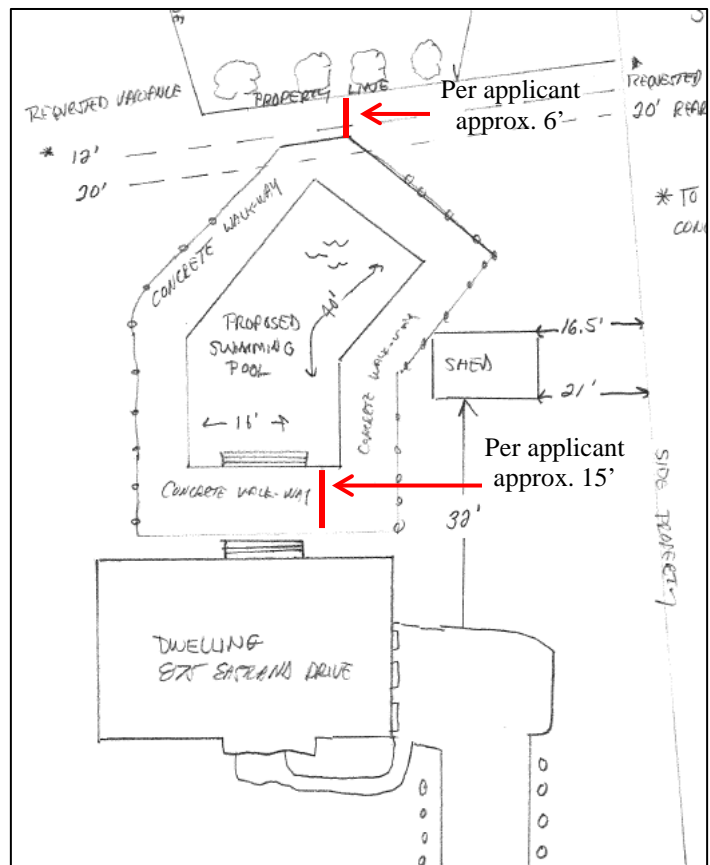 REQUESTED VARIANCE
PROPERTY LINE
* 12'
20'
Per applicant
approx. 6'
*
REQUESTED
20' REAR
* TO
CONC
CONCRETE WALK-WAY
PROPOSED
SWIMMING
POOL
40'
16'
CONCRETE WALK-WAY
SHED
16.5'
21'
Per applicant
approx. 15'
CONCRETE WALK-WAY
32'
SIDE PROPERTY
DWELLING
875 EASTLAND DRIVE